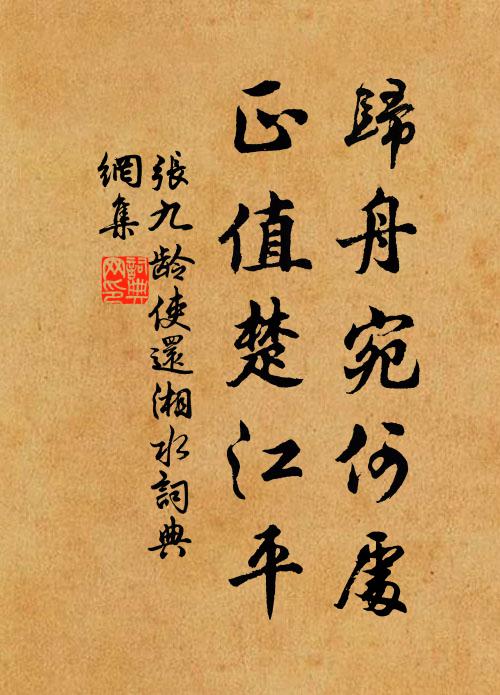 歸舟宛何處
正值楚江平
張九齡使還湘水詞典
網集
詞典
网印